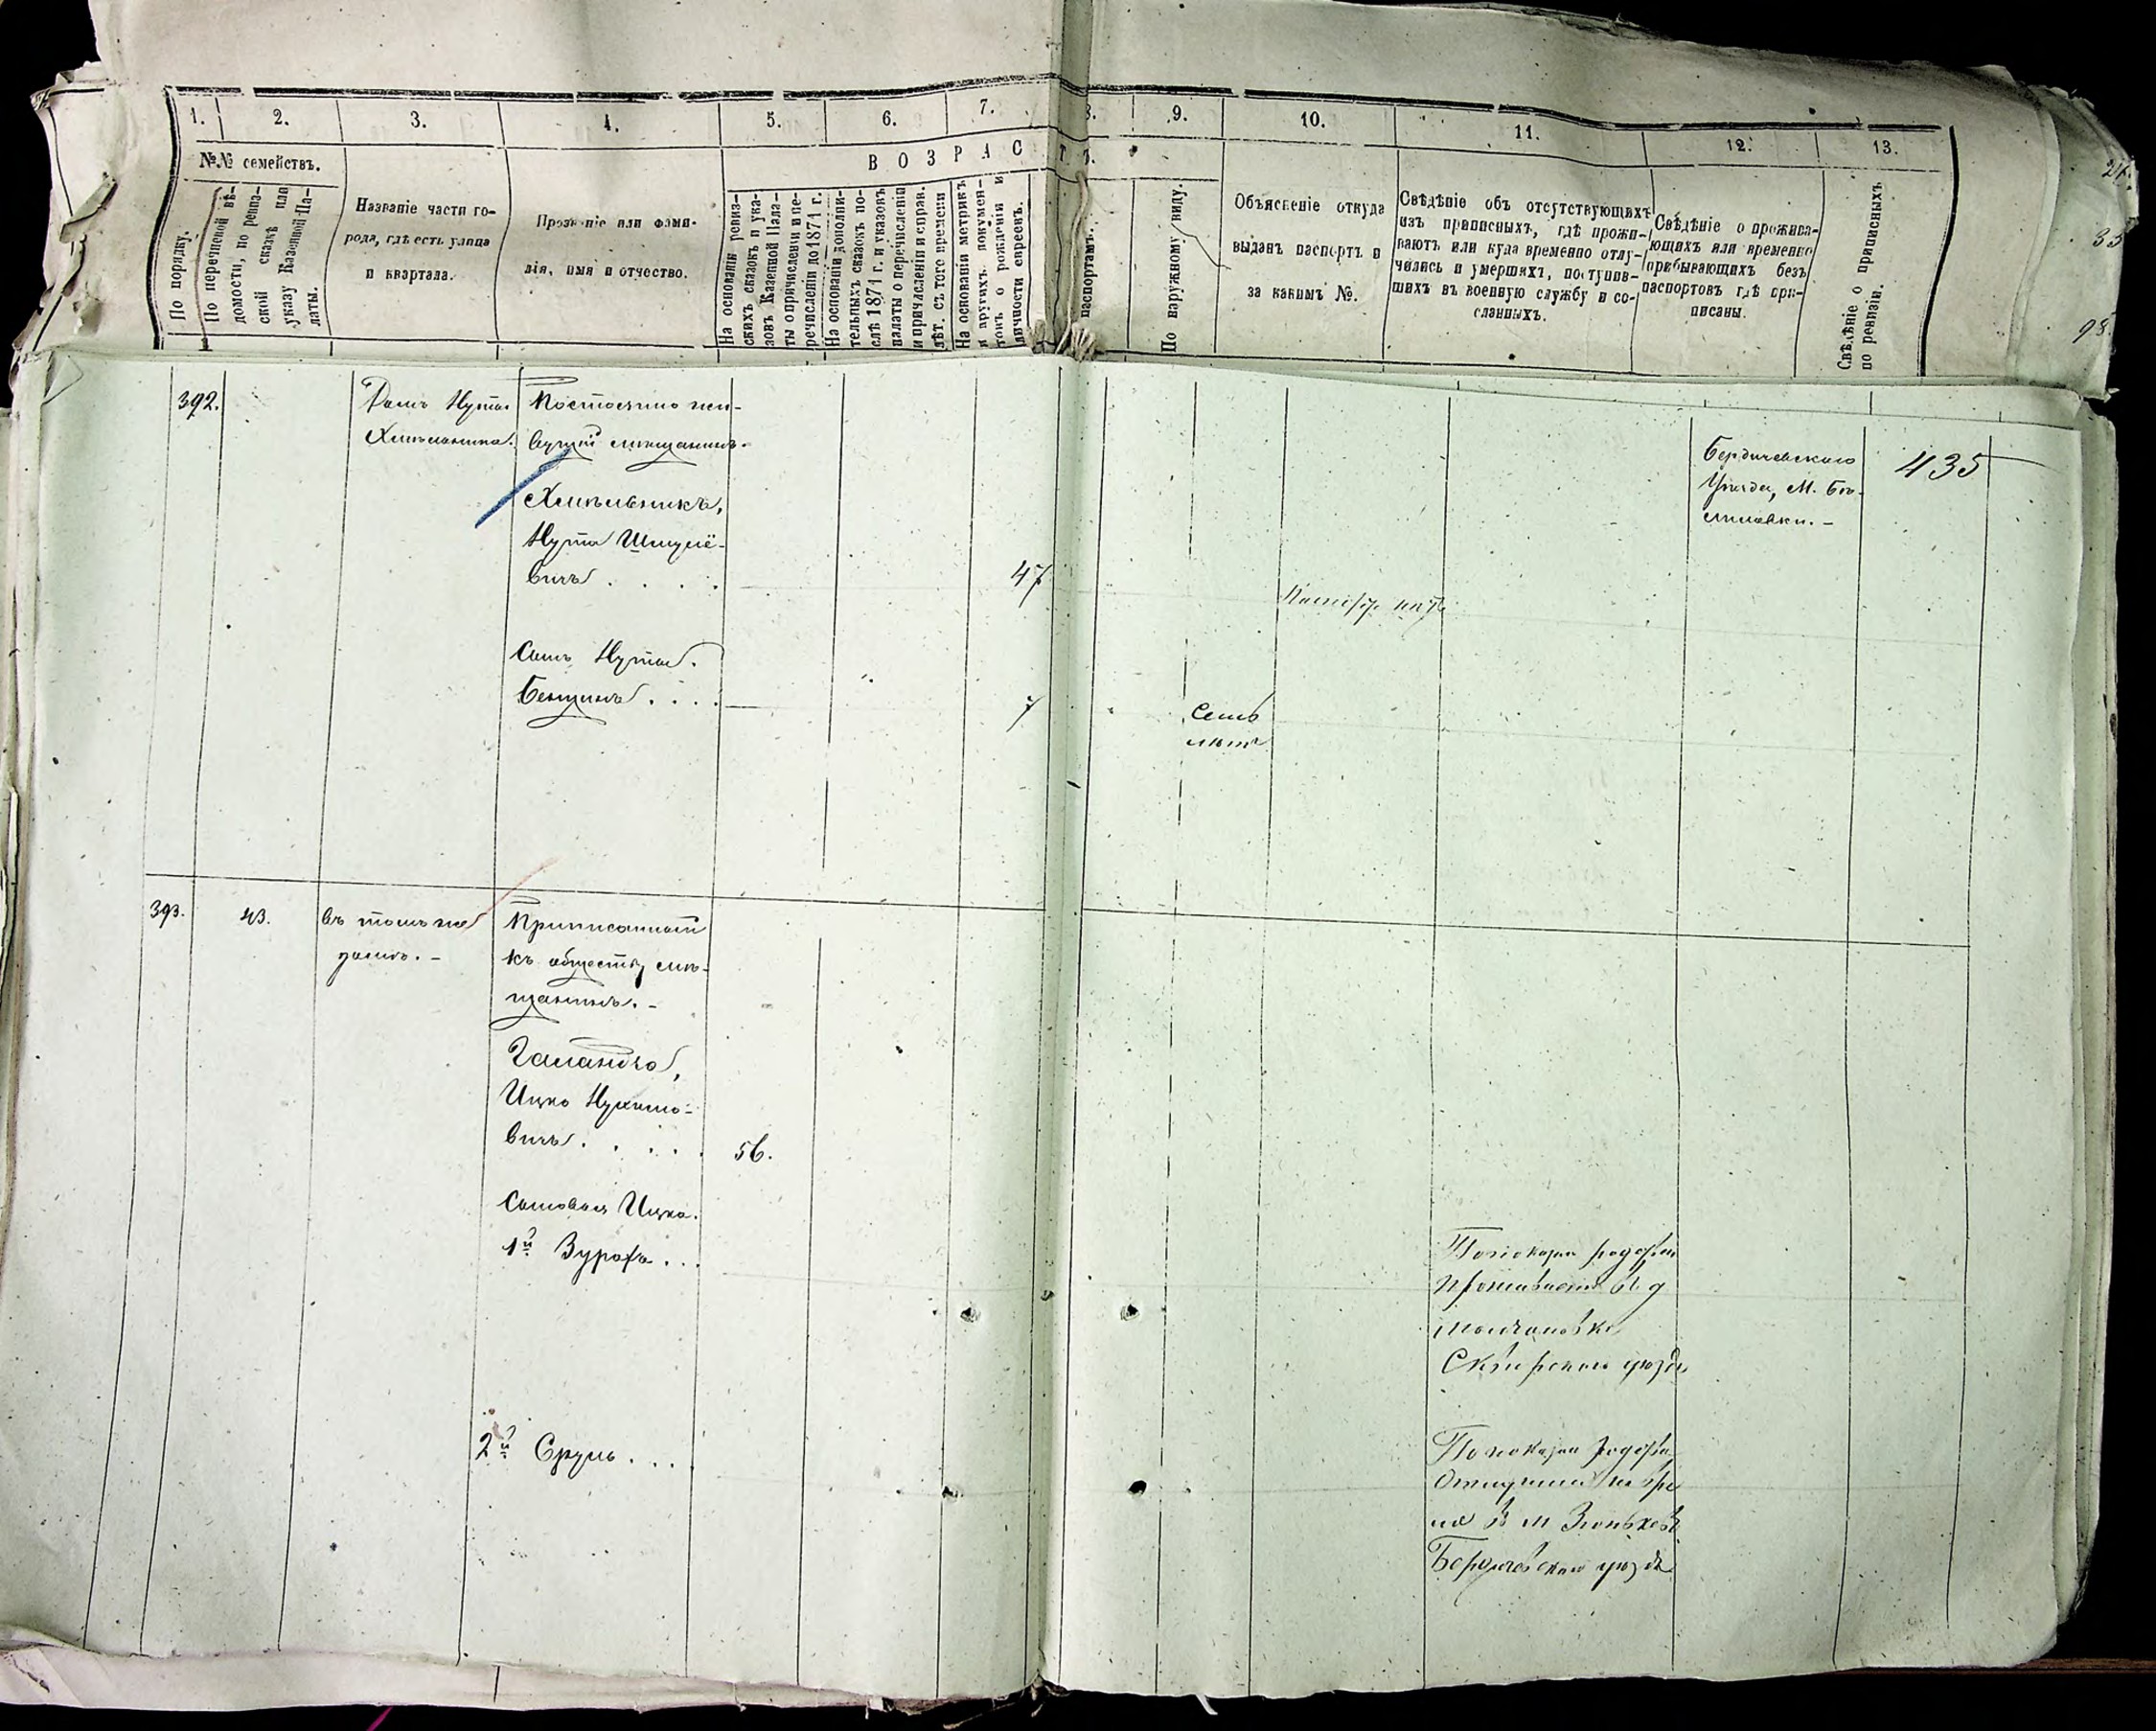 1.
2.
3.
4.
5.
6.
7.
8.
9.
10.
11.
12.
13.
№№ семействъ.
ВОЗРАСТЪ.
По порядку.
По перечневой вѣ-
домости, по ревиз-
ской сказкѣ или
указу Казенной Па-
латы.
Названіе части го-
рода, гдѣ есть улица
и квартала.
Прозваніе или фами-
лія, имя и отчество.
На основаніи ревиз-
скихъ сказокъ и ука-
зовъ Казенной Пала-
ты о причисленіи и пе-
речисленіи до 1871 г.
На основаніи дополни-
тельныхъ сказокъ по-
слѣ 1871 г. и указовъ
палаты о перечисленіи
и причисленіи и справ.
лѣт. съ того времени
На основаніи метрикъ
и другихъ докумен-
товъ о рожденіи и
личности евреевъ.
паспортамъ.
По наружному виду.
Объясненіе откуда
выданъ паспортъ и
за какимъ №.
Свѣдѣніе объ отсутствующихъ
изъ приписныхъ, гдѣ прожи-
ваютъ или куда временно отлу-
чились и умершихъ, поступив-
шихъ въ военную службу и со-
сланныхъ.
Свѣдѣніе о прожива-
ющихъ или временно
прибывающихъ безъ
паспортовъ гдѣ при-
писаны.
Свѣдѣніе о приписныхъ
по ревизіи.
392.
Домъ Нуты
Хмѣльника.
Постоянно жи-
вущій мѣщанинъ.
Хмѣльникъ,
Нута Шмулё-
вичъ . . . .
47
Бердичевскаго
Уѣзда, М. Бѣ-
лиловки. -
435
Сынъ Нуты.
Бенціонъ . . . .
7
Семь
лѣтъ
393.
43.
въ томъ же
домѣ. -
Приписанный
къ обществу мѣ-
щанинъ. -
Галандзъ,
Ицко Нухимо-
вичъ . . . . .
56.
Сыновья Ицка.
1й Зурохъ . . .
По показан родствен
проживаетъ въ д
Молчановкѣ
Сквирскаго уѣзда
2й Сруль . . . .
По показан родствен
въ м
Бердичевскаго уѣзда